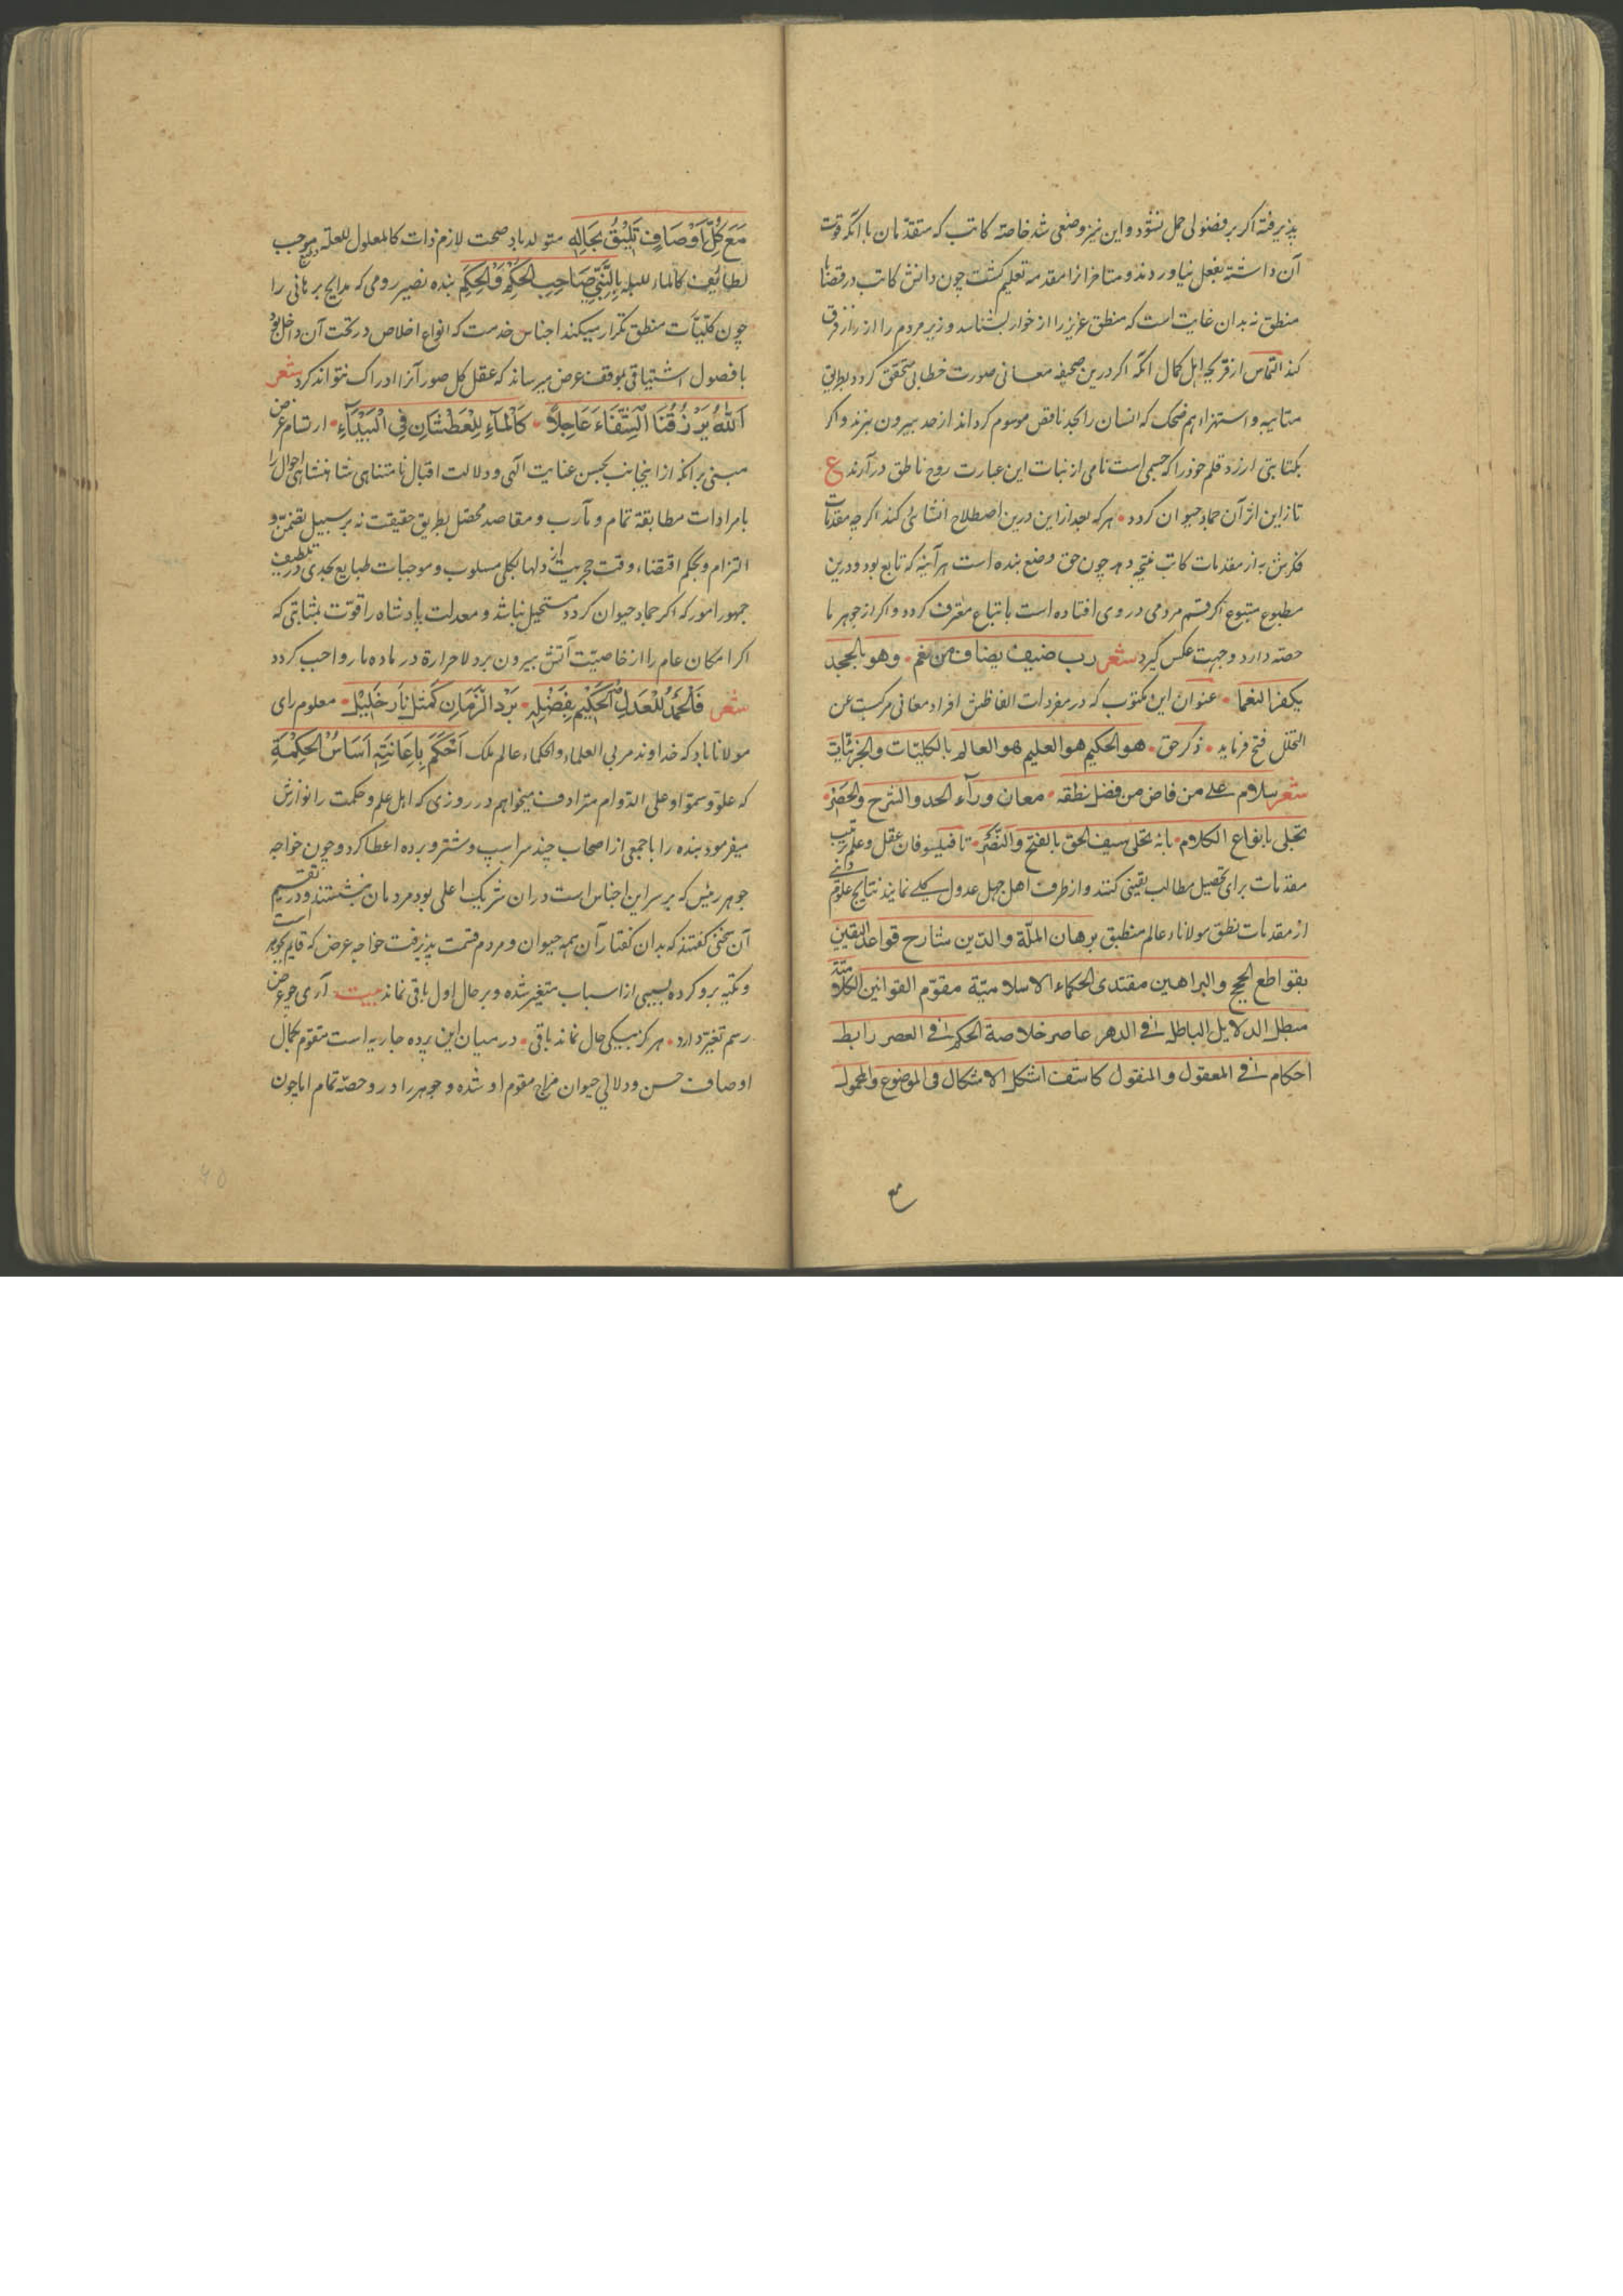 پذیرفته اگر بر فضولی حمل نشود و این نیز وضعی شد خاصه کاتب که متقدمان با آنکه قوت
آن داشته بفعل نیاوردند و متاخرانرا مقدمه تعلیم گشت چون دانش کاتب در قضایا
منطق نه بدان غایت است که منطق عزیز را از خوار بشناسد و زیر مردم را از راز فرق
کند التماس از قریحه اهل کمال آنکه اگر درین صحیفه معانی صورت خطابی متحقق گردد بطریق
متانیه و استهزاء هم ضحک که انسان را بحد ناقص موسوم کرداند از حد بیرون نبرند و اگر
بکتابتی ارزد قلم خود را که جسمی است نامی از نبات این عبارت روح ناطق در آرند ع
تا زاین اثر آن جماد حیوان گردد • هرکه بعد از این درین اصطلاح انشائی کند اگرچه مقدمات
فکرش به از مقدمات کاتب نتیجه دهد چون حق وضع بنده است هر آینه که تابع بود و درین
مطبوع متبوع اگر قسم مردمی در وی افتاده است باتباع معترف گردد و اگر از جوهر ما
حصه دارد وجهت عکس گیرد شعر رب ضیف یضاف من نعم • وهو بالجحد
یکفر النعما • عنوان این مکتوب که در مفردات الفاظش افراد معانی مرکبست عن
التخلل فتح فرماید • ذکر حق • هو الحکیم هو العلیم هو العالم بالکلیّات والجزئیّات
شعر سلام علی من فاض من فضل نطقه • معان ورآء الحد والشرح والحصر •
تجلی بانواع الکلام • بانه تحلی سیف الحق بالفتح والنصر • تا فیلسوفان عقل و علم ترتیب
مقدمات برای تحصیل مطالب یقینی کنند و از طرف اهل جهل عدول کلی نمایند نتایج علوم دانی
از مقدمات نطق مولاناء عالم منطبق برهان الملّة والدّین شارح قواعد الیقین
بقواطع الحجج والبراهین مقتدی الحکماء الاسلامیّة مقوّم القوانین الکلامیّة
مبطل الدلایل الباطله فی الدهر عاصر خلاصة الحکم فی العصر رابط
احکام فی المعقول والمنقول کاشف اشکل الاشکال فی الموضوع والمحمول
مع
مَعَ کُلِّ اَوْصَافٍ تَلِیْقُ بِحَالِهِ متولد باد صحت لازم ذات کالمعلول للعلة و موجب
لطائف کالماء للبله بِالنَّبِیِّ صَاحِبِ الْحُکْمِ وَالْحِکَمِ بنده نصیر رومی که مدایح برهانی را
چون کلیّات منطق تکرار میکند اجناس خدمت که انواع اخلاص در تحت آن داخل بود
با فصول اشتیاقی بموقف عرض میرساند که عقل کل صور آنرا ادراک نتواند کرد شعر
اَللّٰهُ یَرْزُقُنَا الشِّفَاءَ عَاجِلًا • کَالْمَآءِ لِلْعَطْشَانِ فِی الْبَیْدَآءِ • ارتسام عرض
مبنی بر آنکه از اینجانب بحسن عنایت آلهی و دلالت اقبال نامتناهی شاهنشاهی احوال را
بامرادات مطابقه تمام و مآرب و مقاصد محصل بطریق حقیقت نه بر سبیل تضمن و
التزام و بحکم اقتضاء وقت حجریت از دلها بکلی مسلوب و موجبات طبایع بحدی در تلطیف
جمهور امور که اگر جماد حیوان گردد مستحیل نباشد و معدلت پادشاه را قوّت بمثابتی که
اگر امکان عام را از خاصیّت آتش بیرون برد لاحرارة در ماده ما رواجب گردد
شعر فَالْحَمْدُ لِلْعَدْلِ الْحَکِیْمِ بِفَضْلِهِ • بَرْدُ الزَّمَانِ کَمِثْلِ نَارِ خَلِیْلٍ • معلوم رای
مولانا باد که خداوند مربی العلماء والحکماء عالم ملک اَحْکَمَ بِاِعَانَتِهِ اَسَاسَ الْحِکْمَةِ
که علو و سمو او علی الدّوام مترادف میخواهم در روزی که اهل علم و حکمت را نوازش
میفرمود بنده را با جمعی از اصحاب چند سر اسپ و شتر و برده اعطا کرد و چون خواجه
جوهر رئیس که بر سر این اجناس است در آن شریک اعلی بود مردمان بنشستند و در تقسیم
آن سخنی گفتند که بدان گفتار آن همه حیوان و مردم قسمت پذیرفت خواجه عرض که قایم بجوهر است
و تکیه برو کرده بسببی از اسباب متغیر شده و بر حال اول باقی نماند بیت آری چو عرض
رسم تغیّر دارد • هرگز بیکی حال نماند باقی • در میان این برده جاریه است متقوم بکمال
اوصاف حسن و دلالی حیوان مزاج مقوم او شده و جوهر را در و حصّه تمام اما چون